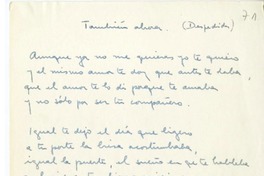 También ahora. (Despedida) 71
Aunque ya no me quieras yo te quiero
y el mismo amor te doy que antes te daba,
que el amor te lo di porque te amaba
y no sólo por ser tu compañero.
Igual te dejo el día que ligero
a te porte la brisa acostumbraba,
igual la puerta, el sueño en que te hablaba